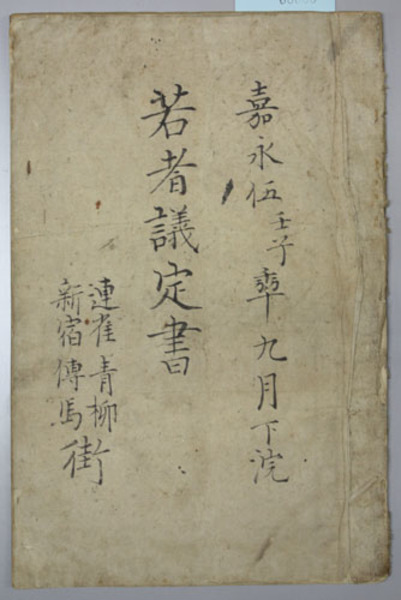 嘉永伍壬子年九月下浣
若者議定書
連雀青柳
新宿傳馬街